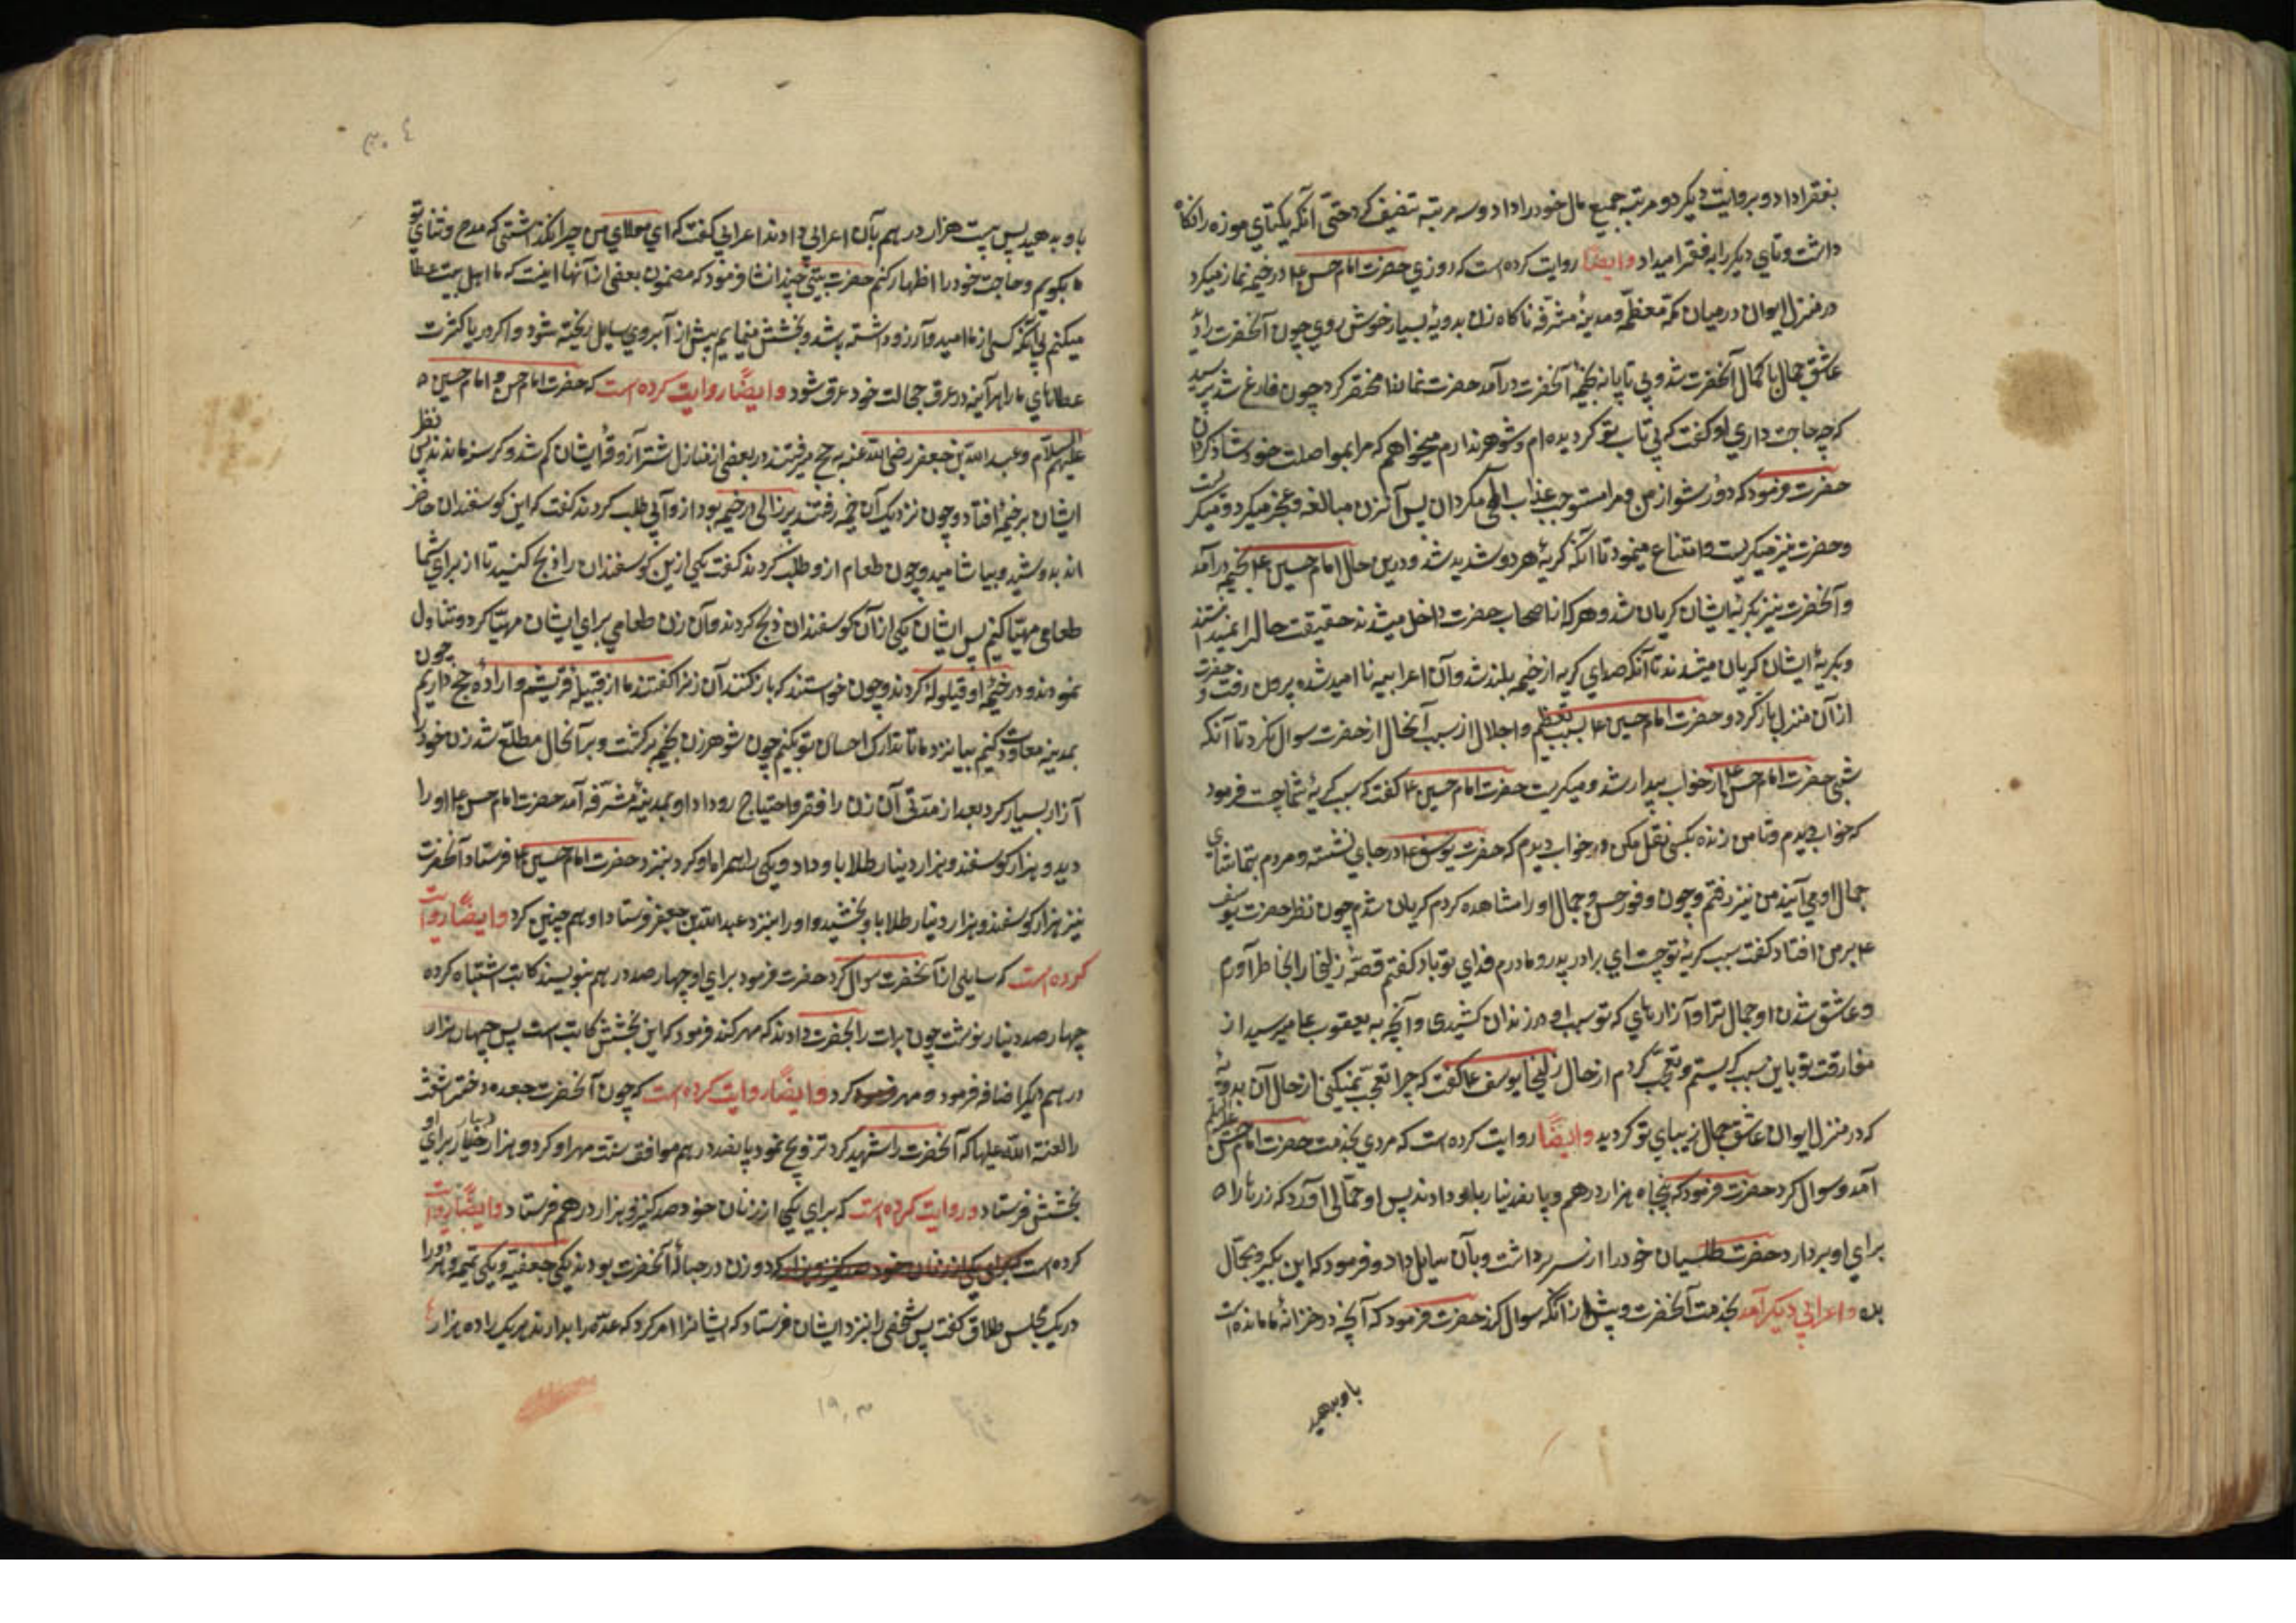 بفقرا داد و بروایت دیکر دو مرتبه جمیع مال خود را داد و سه مرتبه تنصیف کرد حتی آنکه یکتای موزه را نکاه
داشت و تای دیکر را به فقرا میداد و ایضا روایت کرده است که روزی حضرت امام حسن ع در خیمه نماز میکرد
در منزل ابوان در میان مکه معظمه و مدینه مشرفه ناکاه زن بدویه بسیار خوش روی چون آنحضرت را دید
عاشق جمال با کمال آنحضرت شد و بی تابانه بخیمه آنحضرت درآمد حضرت نماز را مختصر کرد چون فارغ شد پرسید
که چه حاجت داری او کفت که بی تاب تو کردیده ام و شوهر ندارم میخواهم که مرا بمواصلت خود شاد کردان
حضرت فرمود که دور شو از من و مرا مستوجب عذاب الهی مکردان پس آنزن مبالغه و عجز میکرد و میکریست
و حضرت نیز میکریست و امتناع مینمود تا آنکه کریه هر دو شدید شد و درین حال امام حسین ع بخیمه درآمد
و آنحضرت نیز بکریه ایشان کریان شد و هر که از اصحاب حضرت داخل میشدند حقیقت حال را نمیدانستند
و بکریه ایشان کریان میشدند تا آنکه صدای کریه از خیمه بلند شد و آن اعرابیه نا امید شده بیرون رفت و حضرت
از آن منزل بار کرد و حضرت امام حسین ع بسبب تعظیم و اجلال از سبب آنحال از حضرت سوال نکرد تا آنکه
شبی حضرت امام حسن ع از خواب بیدار شد و میکریست حضرت امام حسین ع کفت که سبب کریه شما چیست فرمود
که خوابی دیدم و تا من زنده بکسی نقل مکن در خواب دیدم که حضرت یوسف ع در جای نشسته و مردم بتماشای
جمال او می آیند من نیز رفتم و چون وفور حسن و جمال او را مشاهده کردم کریان شدم چون نظر حضرت یوسف
ع بر من افتاد کفت سبب کریه تو چیست ای برادر پدر و مادرم فدای تو باد کفتم قصه زلیخا را بخاطر آوردم
و عاشق شدن او جمال ترا و آزارهای که تو بسبب او در زندان کشیدی و آنچه به یعقوب ع میرسید از
مفارقت تو باین سبب کریستم و تعجب کردم از حال زلیخا یوسف ع کفت که چرا تعجب نمیکنی از حال آن بدویه
که در منزل ابوان عاشق جمال زیبای تو کردید و ایضا روایت کرده است که مردی بخدمت حضرت امام حسن علیه السلام
آمد و سوال کرد حضرت فرمود که پنجاه هزار درهم و پانصد دینار باو دادند پس او حمالی آورد که زرها را
برای او بردارد حضرت طلیسان خود را از سر برداشت و بآن سایل داد و فرمود که این بکیر و بحمال
بده و اعرابی دیکر آمد بخدمت آنحضرت و پیش از آنکه سوال کند حضرت فرمود که آنچه در خزانه ما مانده است
باو بدهید
۳۰۴
باو بدهید پس بیست هزار درهم بآن اعرابی دادند اعرابی کفت که ای مولای من چرا نکذاشتی که مدح و ثنای تو
بکویم و حاجت خود را اظهار کنم حضرت بیتی چند انشا فرمود که مضمون بعضی از آنها اینست که ما اهل بیت عطا
میکنم بی آنکه کسی از ما امید و آرزو داشته باشد و بخشش مینمایم پیش از آبروی سایل ریخته شود و اکر دریا کثرت
عطاهای ما را بیند هرآینه در عرق خجالت خود غرق شود و ایضا روایت کرده است که حضرت امام حسن و امام حسین
علیهم السلام و عبد الله بن جعفر رضی الله عنه به حج میرفتند در بعضی از منازل شتر آزوقه ایشان کم شد و کرسنه ماندند پس نظر
ایشان بر خیمه افتاد و چون نزدیک آن خیمه رفتند پیرزالی در خیمه بود از و آبی طلب کردند کفت که این کوسفندان حاضر
اند بدوشید و بیاشامید و چون طعام از و طلب کردند کفت یکی ازین کوسفندان را ذبح کنید تا از برای شما
طعامی مهیا کنیم پس ایشان یکی از آن کوسفندان ذبح کردند و آن زن طعامی برای ایشان مهیا کرد و تناول
نمودند و در خیمه او قیلوله کردند و چون خواستند که بار کنند آن زنرا کفتند ما از قبیله قریشیم و اراده حج داریم چون
بمدینه معاودت کنیم بیا نزد ما تا تدارک احسان تو بکنیم چون شوهر زن بخیمه برکشت و بر آنحال مطلع شد زن خود را
آزار بسیار کرد بعد از مدتی آن زن را فقر و احتیاج رو داد او بمدینه مشرفه آمد حضرت امام حسن ع او را
دید و هزار کوسفند و هزار دینار طلا باو داد و یکی را همراه او کرد بنزد حضرت امام حسین ع فرستاد آنحضرت
نیز هزار کوسفند و هزار دینار طلا باو بخشید و او را بنزد عبد الله بن جعفر فرستاد او هم چنین کرد و ایضا روایت
کرده است که سایلی از آنحضرت سوال کرد حضرت فرمود برای او چهار صد درهم بنویسند کاتب اشتباه کرده
چهار صد دینار نوشت چون برات را بحضرت دادند که مهر کند فرمود که این بخشش کاتب است پس چهار هزار
درهم دیکر اضافه فرمود و مهر کرد و ایضا روایت کرده است که چون آنحضرت جعده دختر اشعث
را لعنة الله علیها که آنحضرت را شهید کرد تزویج نمود پانصد درهم موافق سنت مهر او کرد و هزار دینار برای او
بخشش فرستاد و روایت کرده است که برای یکی از زنان خود صد کنیز و هزار درهم فرستاد و ایضا روایت
کرده است که دو زن در حباله آنحضرت بودند یکی جعفیه و یکی تمیمیه و هر دو را
در یک مجلس طلاق کفت پس شخصی را بنزد ایشان فرستاد که ایشانرا امر کرد که عده را بدارند هر یک را ده هزار
۱۹۰۳